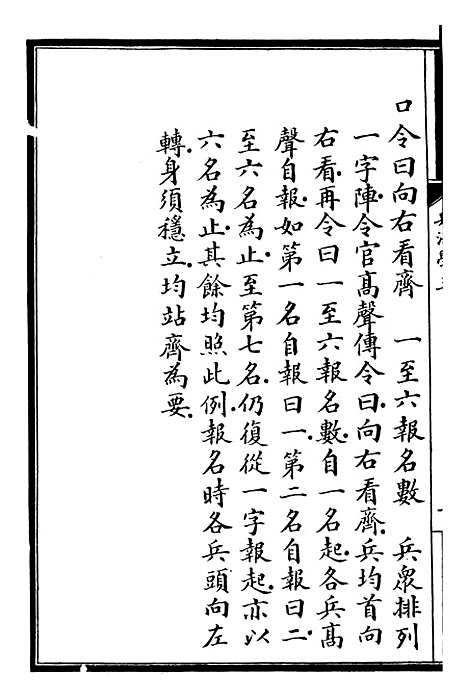 口令曰向右看齊　一至六報名數　兵眾排列
一字陣令官高聲傳令曰向右看齊兵均首向
右看再令曰一至六報名數自一名起各兵高
聲自報如第一名自報曰一第二名自報曰二
至六名為止至第七名仍復從一字報起亦以
六名為止其餘均照此例報名時各兵頭向左
轉身須穩立均站齊為要